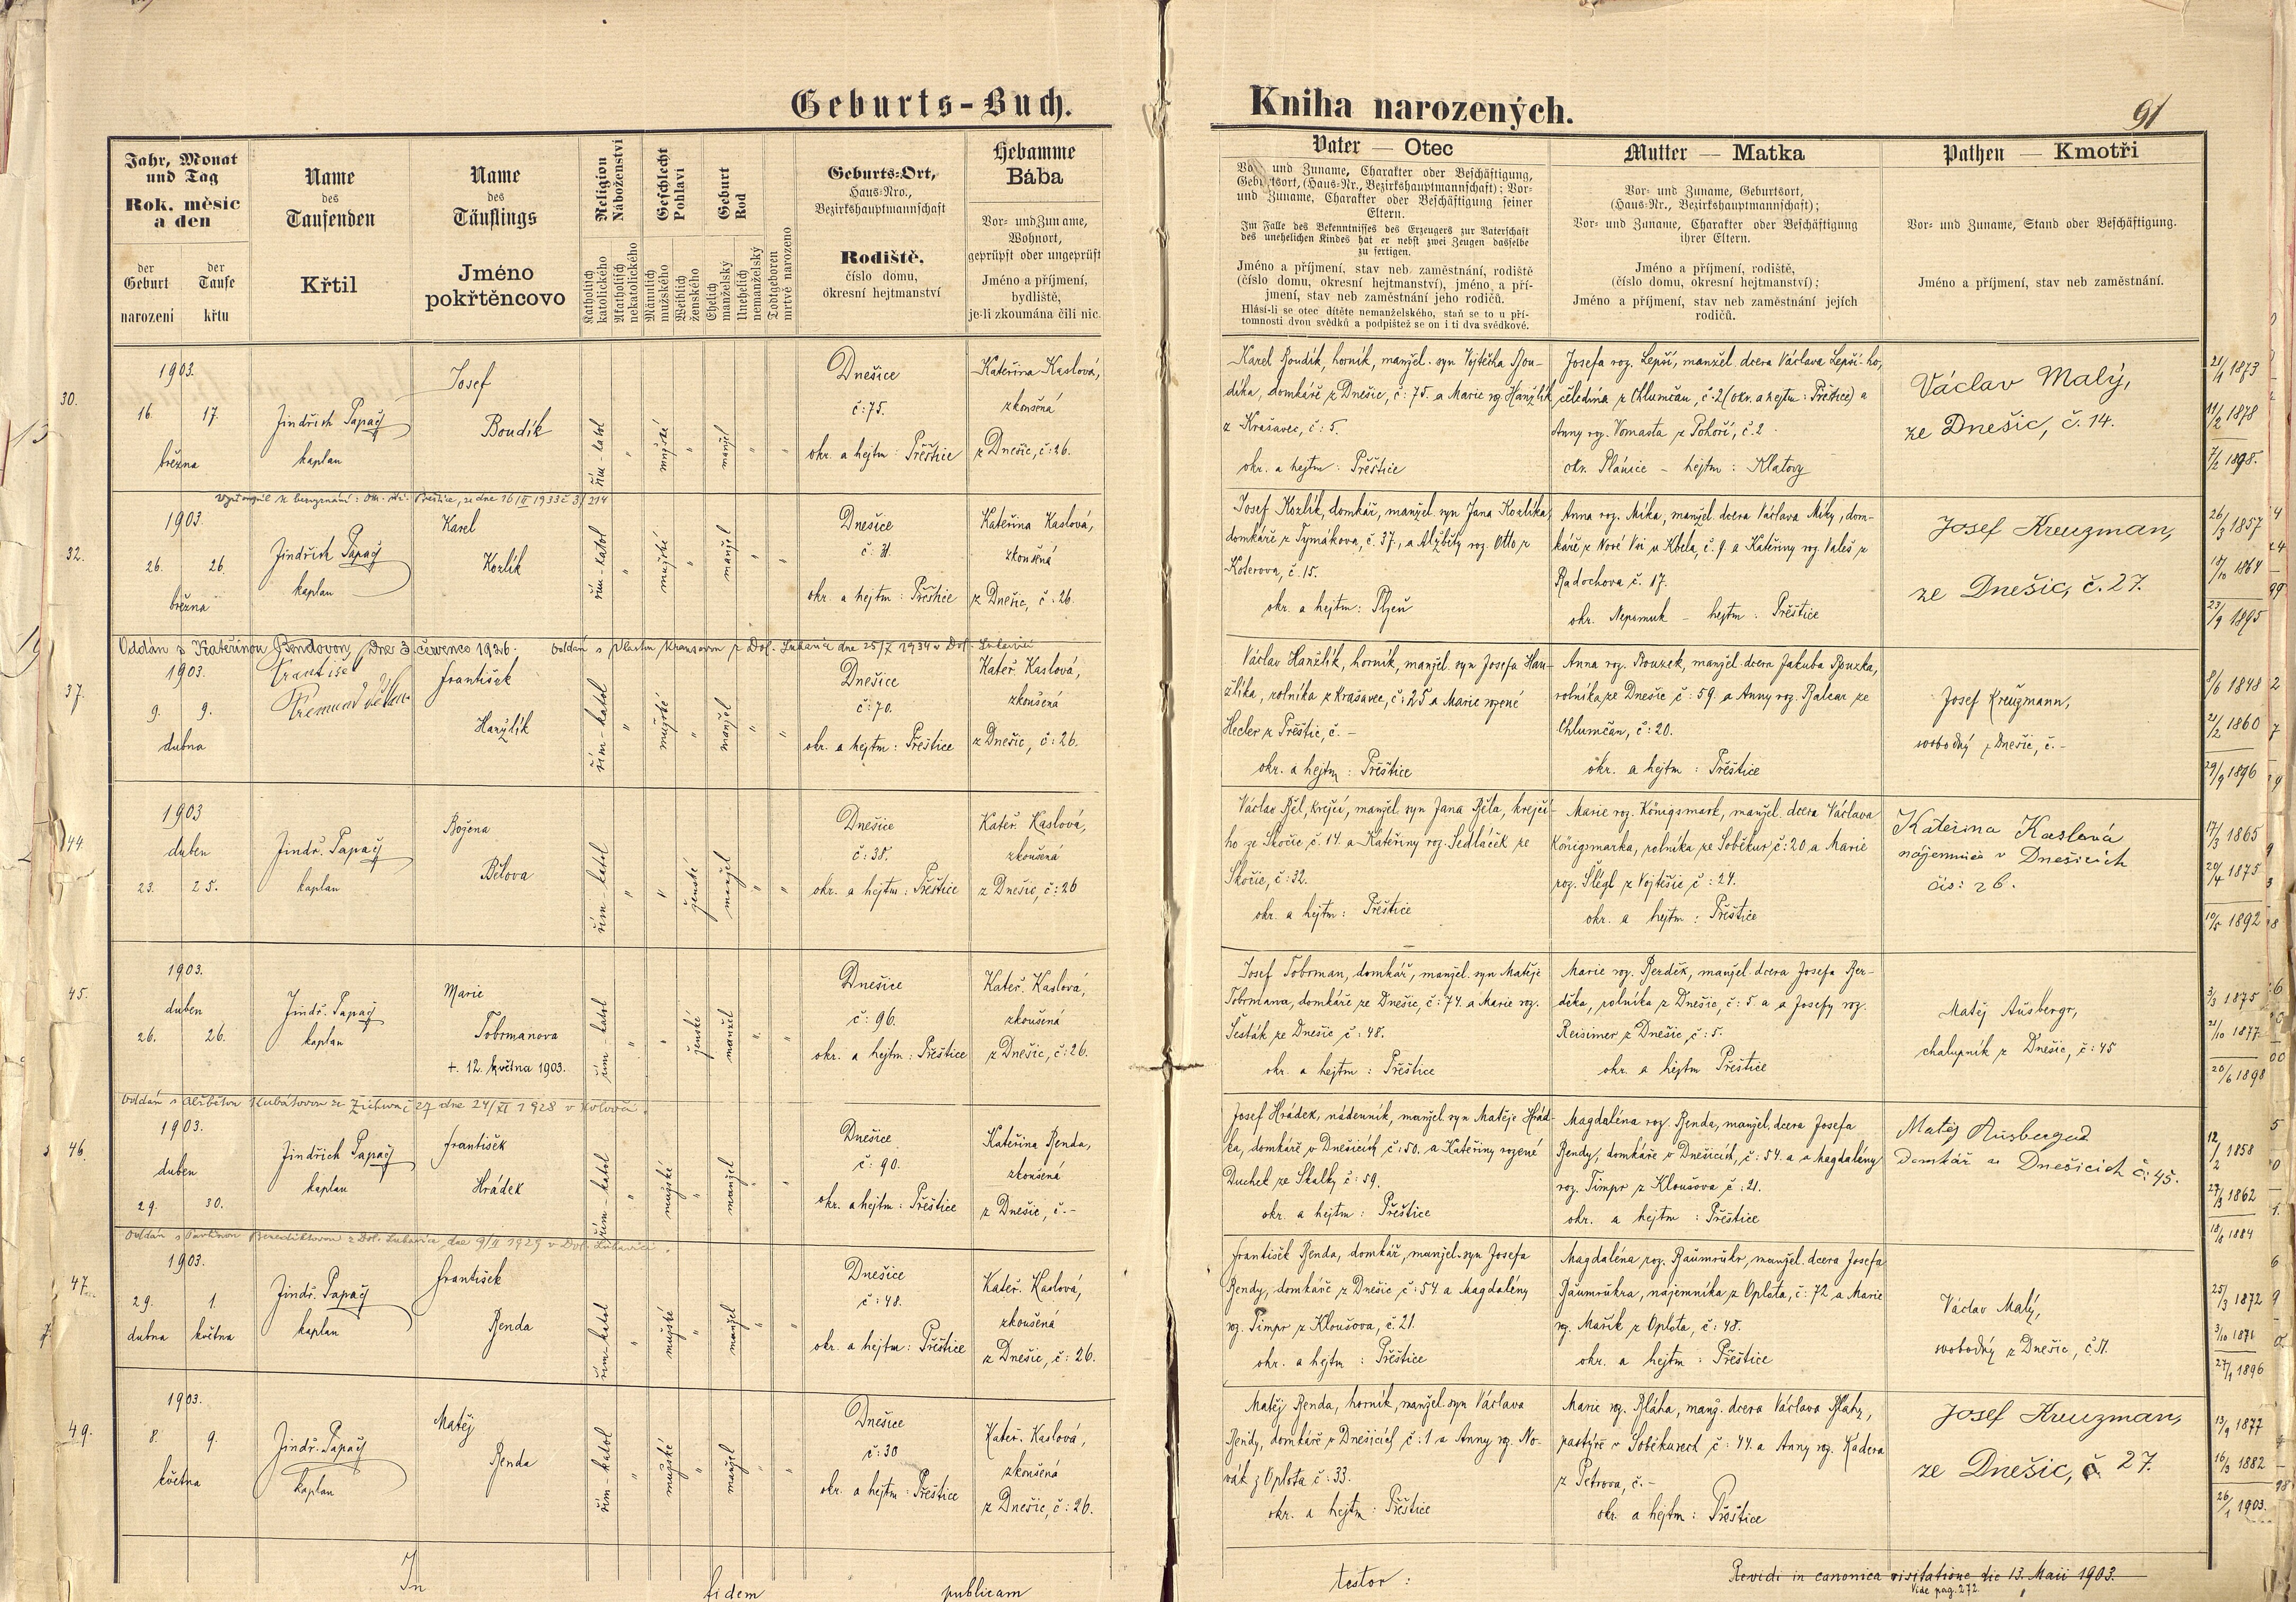 Geburts-Buch.
Kniha narozených.
91
Jahr, Monat und Tag
Rok, měsíc a den
der Geburt
narození
der Taufe
křtu
Name des Taufenden
Křtil
Name des Täuflings
Jméno pokřtěncovo
Religion
Náboženství
Katholisch
katolického
Akatholisch
nekatolického
Geschlecht
Pohlaví
Männlich
mužského
Weiblich
ženského
Geburt
Rod
Ehelich
manželský
Unehelich
nemanželský
Todtgeboren
mrtvě narozeno
Geburts-Ort,
Haus-Nro.,
Bezirkshauptmannschaft
Rodiště,
číslo domu,
okresní hejtmanství
Hebamme
Bába
Vor- und Zuname,
Wohnort,
geprüpft oder ungeprüft
Jméno a příjmení,
bydliště,
je-li zkoumána čili nic.
Vater — Otec
Vor- und Zuname, Charakter oder Beschäftigung,
Geburtsort, (Haus-Nr., Bezirkshauptmannschaft); Vor-
und Zuname, Charakter oder Beschäftigung seiner
Eltern.
Im Falle des Bekenntnisses des Erzeugers zur Vaterschaft
des unehelichen Kindes hat er nebst zwei Zeugen dasselbe
zu fertigen.
Jméno a příjmení, stav neb zaměstnání, rodiště
(číslo domu, okresní hejtmanství), jméno a pří-
jmení, stav neb zaměstnání jeho rodičů.
Hlásí-li se otec dítěte nemanželského, staň se to u pří-
tomnosti dvou svědků a podpištež se on i ti dva svědkové.
Mutter — Matka
Vor- und Zuname, Geburtsort,
(Haus-Nr., Bezirkshauptmannschaft);
Vor- und Zuname, Charakter oder Beschäftigung
ihrer Eltern.
Jméno a příjmení, rodiště,
(číslo domu, okresní hejtmanství);
Jméno a příjmení, stav neb zaměstnání jejich
rodičů.
Pathen — Kmotři
Vor- und Zuname, Stand oder Beschäftigung.
Jméno a příjmení, stav neb zaměstnání.
30.
1903.
16. 17.
března
Jindřich Papač
kaplan
Josef
Boudík
řím-katol
mužské
manžel
Dnešice
č: 75.
okr. a hejtm: Přeštice
Kateřina Kaslová,
zkoušená
z Dnešic, č: 26.
Karel Boudík, horník, manžel. syn Vojtěcha Bou-
díka, domkáře z Dnešic, č: 75. a Marie roz. Hanzlík
z Krašovec, č: 5.
okr. a hejtm: Přeštice
Josefa roz. Lepší, manžel. dcera Václava Lepší-ho,
čeledína z Chlumčan, č. 2 (okr. a hejtm: Přeštice) a
Anny roz. Vomasta z Pohoří, č. 2
okr. Plánice - hejtm: Klatovy
Václav Malý,
ze Dnešic, č. 14.
21/1 1873
11/2 1878
7/2 1898.
32.
1903.
26. 26.
března
Jindřich Papač
kaplan
Karel
Kozlík
řím-katol
mužské
manžel
Dnešice
č: 31.
okr. a hejtm: Přeštice
Kateřina Kaslová,
zkoušená
z Dnešic, č: 26.
Josef Kozlík, domkář, manžel. syn Jana Kozlíka,
domkáře z Tymákova, č. 37., a Alžběty roz. Otto z
Koterova, č. 15.
okr. a hejtm: Plzeň
Anna roz. Míka, manžel. dcera Václava Míky, dom-
káře z Nové Vsi u Kbela, č. 9. a Kateřiny roz. Valeš z
Radochova č. 17.
okr. Nepomuk - hejtm: Přeštice
Josef Kreuzman,
ze Dnešic, č. 27.
26/3 1857
18/10 1864
23/9 1895
Oddán s Kateřinou Bendovou, dne 3. července 1926.
37.
1903.
9. 9.
dubna
František
František
Hanzlík
řím-katol
mužské
manžel
Dnešice
č: 70.
okr. a hejtm: Přeštice
Kateř. Kaslová,
zkoušená
z Dnešic, č: 26.
Václav Hanzlík, horník, manžel. syn Josefa Han-
zlíka, rolníka z Krašovec, č: 25 a Marie rozené
Hecler z Přeštic, č. -
okr. a hejtm: Přeštice
Anna roz. Bouzek, manžel. dcera Jakuba Bouzka,
rolníka ze Dnešic č: 59. a Anny roz. Balcar ze
Chlumčan, č: 20.
okr. a hejtm: Přeštice
Josef Kreuzmann,
svobodný z Dnešic, č. -
8/6 1848
21/2 1860
29/9 1896
44.
1903
duben
23. 25.
Jindř. Papač
kaplan
Božena
Bělova
řím-katol
ženské
manžel
Dnešice
č: 38.
okr. a hejtm: Přeštice
Kateř. Kaslová,
zkoušená
z Dnešic, č: 26
Václav Běl, krejčí, manžel. syn Jana Běla, krejčí-
ho ze Skočic č. 14. a Kateřiny roz. Sedláček ze
Skočic, č: 32.
okr. a hejtm: Přeštice
Marie roz. Königsmark, manžel. dcera Václava
Königsmarka, rolníka ze Soběkur, č: 20 a Marie
roz. Šlégl z Vojtěšic č: 24.
okr. a hejtm: Přeštice
Kateřina Kaslová
nájemnice v Dnešicích
čís: 26.
17/3 1865
20/4 1875
10/5 1892
45.
1903.
duben
26. 26.
Jindř. Papač
kaplan
Marie
Tobrmanova
+. 12. května 1903.
řím-katol
ženské
manžel
Dnešice
č: 96.
okr. a hejtm: Přeštice
Kateř. Kaslová,
zkoušená
z Dnešic, č: 26.
Josef Tobrman, domkář, manžel. syn Matěje
Tobrmana, domkáře ze Dnešic, č: 74. a Marie roz.
Šesták ze Dnešic č: 48.
okr. a hejtm: Přeštice
Marie roz. Berděk, manžel. dcera Josefa Ber-
děka, rolníka z Dnešic, č: 5 a a Josefy roz.
Reisimer z Dnešic, č: 5.
okr. a hejtm Přeštice
Matěj Ausbergr,
chalupník z Dnešic, č: 45
3/3 1875
21/10 1877
20/6 1898
46.
1903.
duben
29. 30.
Jindřich Papač
kaplan
František
Hrádek
řím-katol
mužské
manžel
Dnešice
č: 90.
okr. a hejtm: Přeštice
Kateřina Benda,
zkoušená
z Dnešic, č. -
Josef Hrádek, nádenník, manžel. syn Matěje Hrád-
ka, domkáře v Dnešicích, č: 50. a Kateřiny rozené
Duchek ze Skalky č: 59.
okr. a hejtm: Přeštice
Magdaléna roz. Benda, manžel. dcera Josefa
Bendy, domkáře v Dnešicích, č: 54. a a Magdalény
roz. Timpr z Kloušova, č: 21.
okr. a hejtm: Přeštice
Matěj
domkář a Dnešicích č: 45.
12/2 1858
27/3 1862
18/8 1884
47.
1903.
29. 1.
dubna května
Jindř. Papač
kaplan
František
Benda
řím-katol
mužské
manžel
Dnešice
č: 48.
okr. a hejtm: Přeštice
Kateř. Kaslová,
zkoušená
z Dnešic, č: 26.
František Benda, domkář, manžel. syn Josefa
Bendy, domkáře z Dnešic č: 54 a Magdalény
roz. Timpr z Kloušova, č. 21.
okr. a hejtm: Přeštice
Magdaléna roz. Baumrukr, manžel. dcera Josefa
Baumrukra, nájemníka z Oplota, č: 72 a Marie
roz. Mařík z Oplota, č: 48.
okr. a hejtm: Přeštice
Václav Malý,
svobodný z Dnešic, č.
25/3 1872
3/10 1871
27/1 1896
49.
1903.
8. 9.
května
Jindř. Papač
kaplan
Matěj
Benda
řím-katol
mužské
manžel
Dnešice
č: 30
okr. a hejtm: Přeštice
Kateř. Kaslová,
zkoušená
z Dnešic, č: 26.
Matěj Benda, horník, manžel. syn Václava
Bendy, domkáře v Dnešicích č: 1 a Anny roz. No-
vák z Oplota č: 33.
okr. a hejtm: Přeštice
Marie roz. Bláha, manž. dcera Václava Bláhy,
pastýře v Soběkurech, č: 44. a Anny roz. Kadera
z Petrova, č. -
okr. a hejtm: Přeštice
Josef Kreuzman,
ze Dnešic, č. 27.
13/9 1877
16/3 1882
26/1 1903.
In fidem publicam testor:
Revidi in canonica visitatione die 13. Maii 1903.
Vide pag. 272.